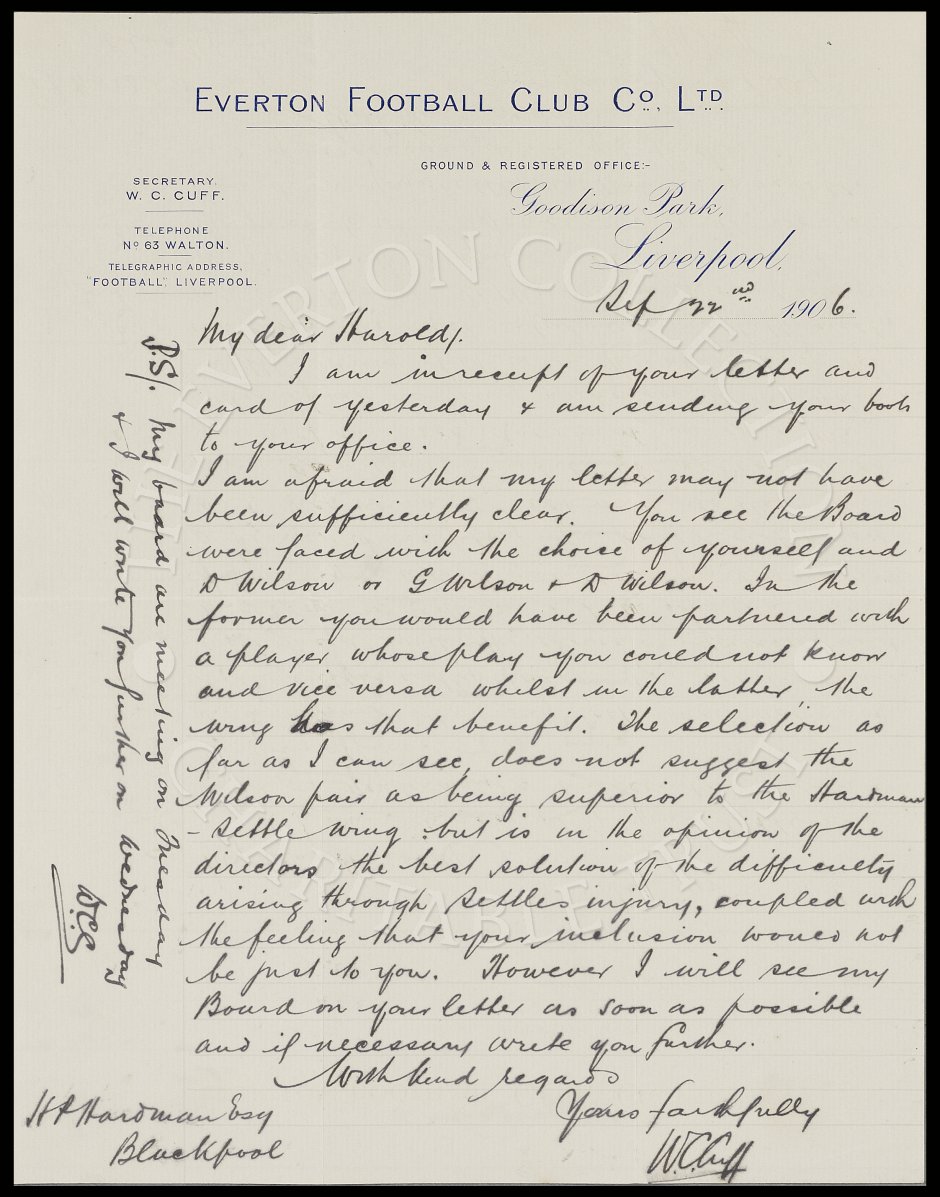 EVERTON FOOTBALL CLUB Co., LTD.
GROUND & REGISTERED OFFICE:-
Goodison Park,
Liverpool,
SECRETARY.
W. C. CUFF.
TELEPHONE
No 63 WALTON.
TELEGRAPHIC ADDRESS,
"FOOTBALL", LIVERPOOL.
Sep 22nd 1906.
My dear Harold/.
I am in receipt of your letter and
card of yesterday & am sending your boots
to your office.
I am afraid that my letter may not have
been sufficiently clear. You see the Board
were faced with the choise of yourself and
D Wilson or G Wilson & D Wilson. In the
former you would have been partnered with
a player, whose play you could not know
and vice versa whilst in the latter, the
wing has that benefit. The selection as
far as I can see, does not suggest the
Wilson pair as being superior to the Hardman
- Settle wing but is in the opinion of the
directors the best solution of the difficulty
arising through Settles injury, coupled with
the feeling that your inclusion would not
be just to you. However I will see my
Board on your letter as soon as possible
and if necessary write you further.
With kind regards
Yours faithfully
W.C. Cuff
H P Hardman Esq
Blackpool
P.S/. My board are meeting on Tuesday
& I will write you further on Wednesday
W.C.C
THE EVERTON COLLECTION
CHARITABLE TRUST